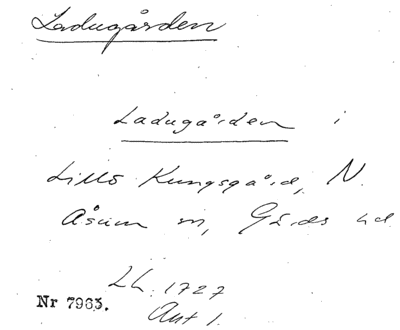 Ladugården
Ladugården i
Lillö Kungsgård, N.
Åsum sn, Gärds hd
Lh. 1727
Ant 1.
Nr 7963.